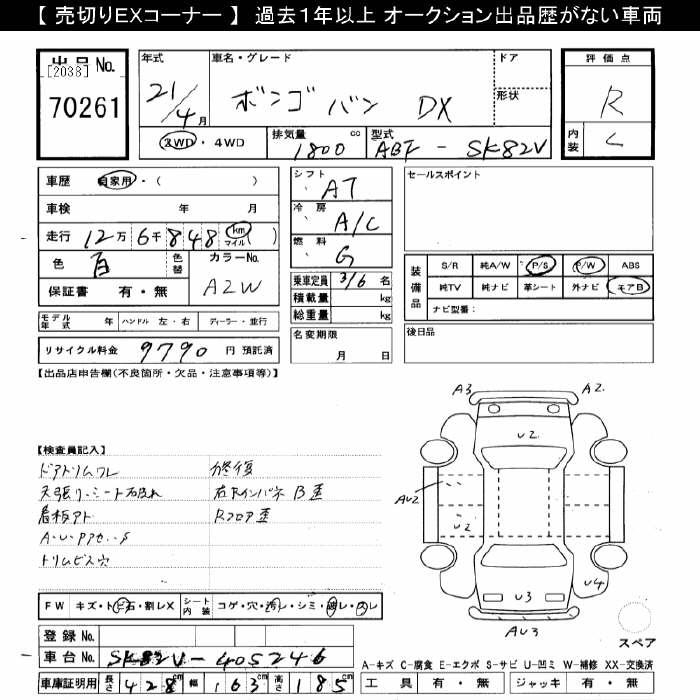 【 売切りEXコーナー 】 過去１年以上 オークション出品歴がない車両
出品 No.
[2038]
70261
年式
21/4月
車名・グレード
ボンゴ バン DX
ドア
形状
評価点
R
内装
C
2WD ・ 4WD
排気量
1800 cc
型式
ABF - SK82V
車歴 自家用・( )
車検 年 月
走行 12万 6千 848 km マイル ( )
色 白 色替
カラーNo.
A2W
保証書 有・無
シフト
AT
冷房
A/C
燃料
G
乗車定員 3/6 名
積載量 kg
総重量 kg
セールスポイント
装備品
S/R 純A/W P/S P/W ABS
純TV 純ナビ 革シート 外ナビ エアB
ナビ型番：
モデル年式 年 ハンドル 左・右 ディーラー・並行
リサイクル料金 9790 円 預託済
名変期限
月 日
後日品
【出品店申告欄(不良箇所・欠品・注意事項等)】
A3 A2
U2
AU2
U2
U4
U3
AU3
スペア
【検査員記入】
ドアトリムワレ 修復
天張り・シート破れ
看板アト Rフロア歪
A・U・PアセS
トリムビス穴
FW キズ・トビ石・割レX シート内装 コゲ・穴・汚レ・シミ・破レ・スレ
登録 No.
車台 No. SK82V-405246
車庫証明用 長さ 428cm 幅 163cm 高さ 185cm
A-キズ C-腐食 E-エクボ S-サビ U-凹ミ W-補修 XX-交換済
工具 有・無 ジャッキ 有・無